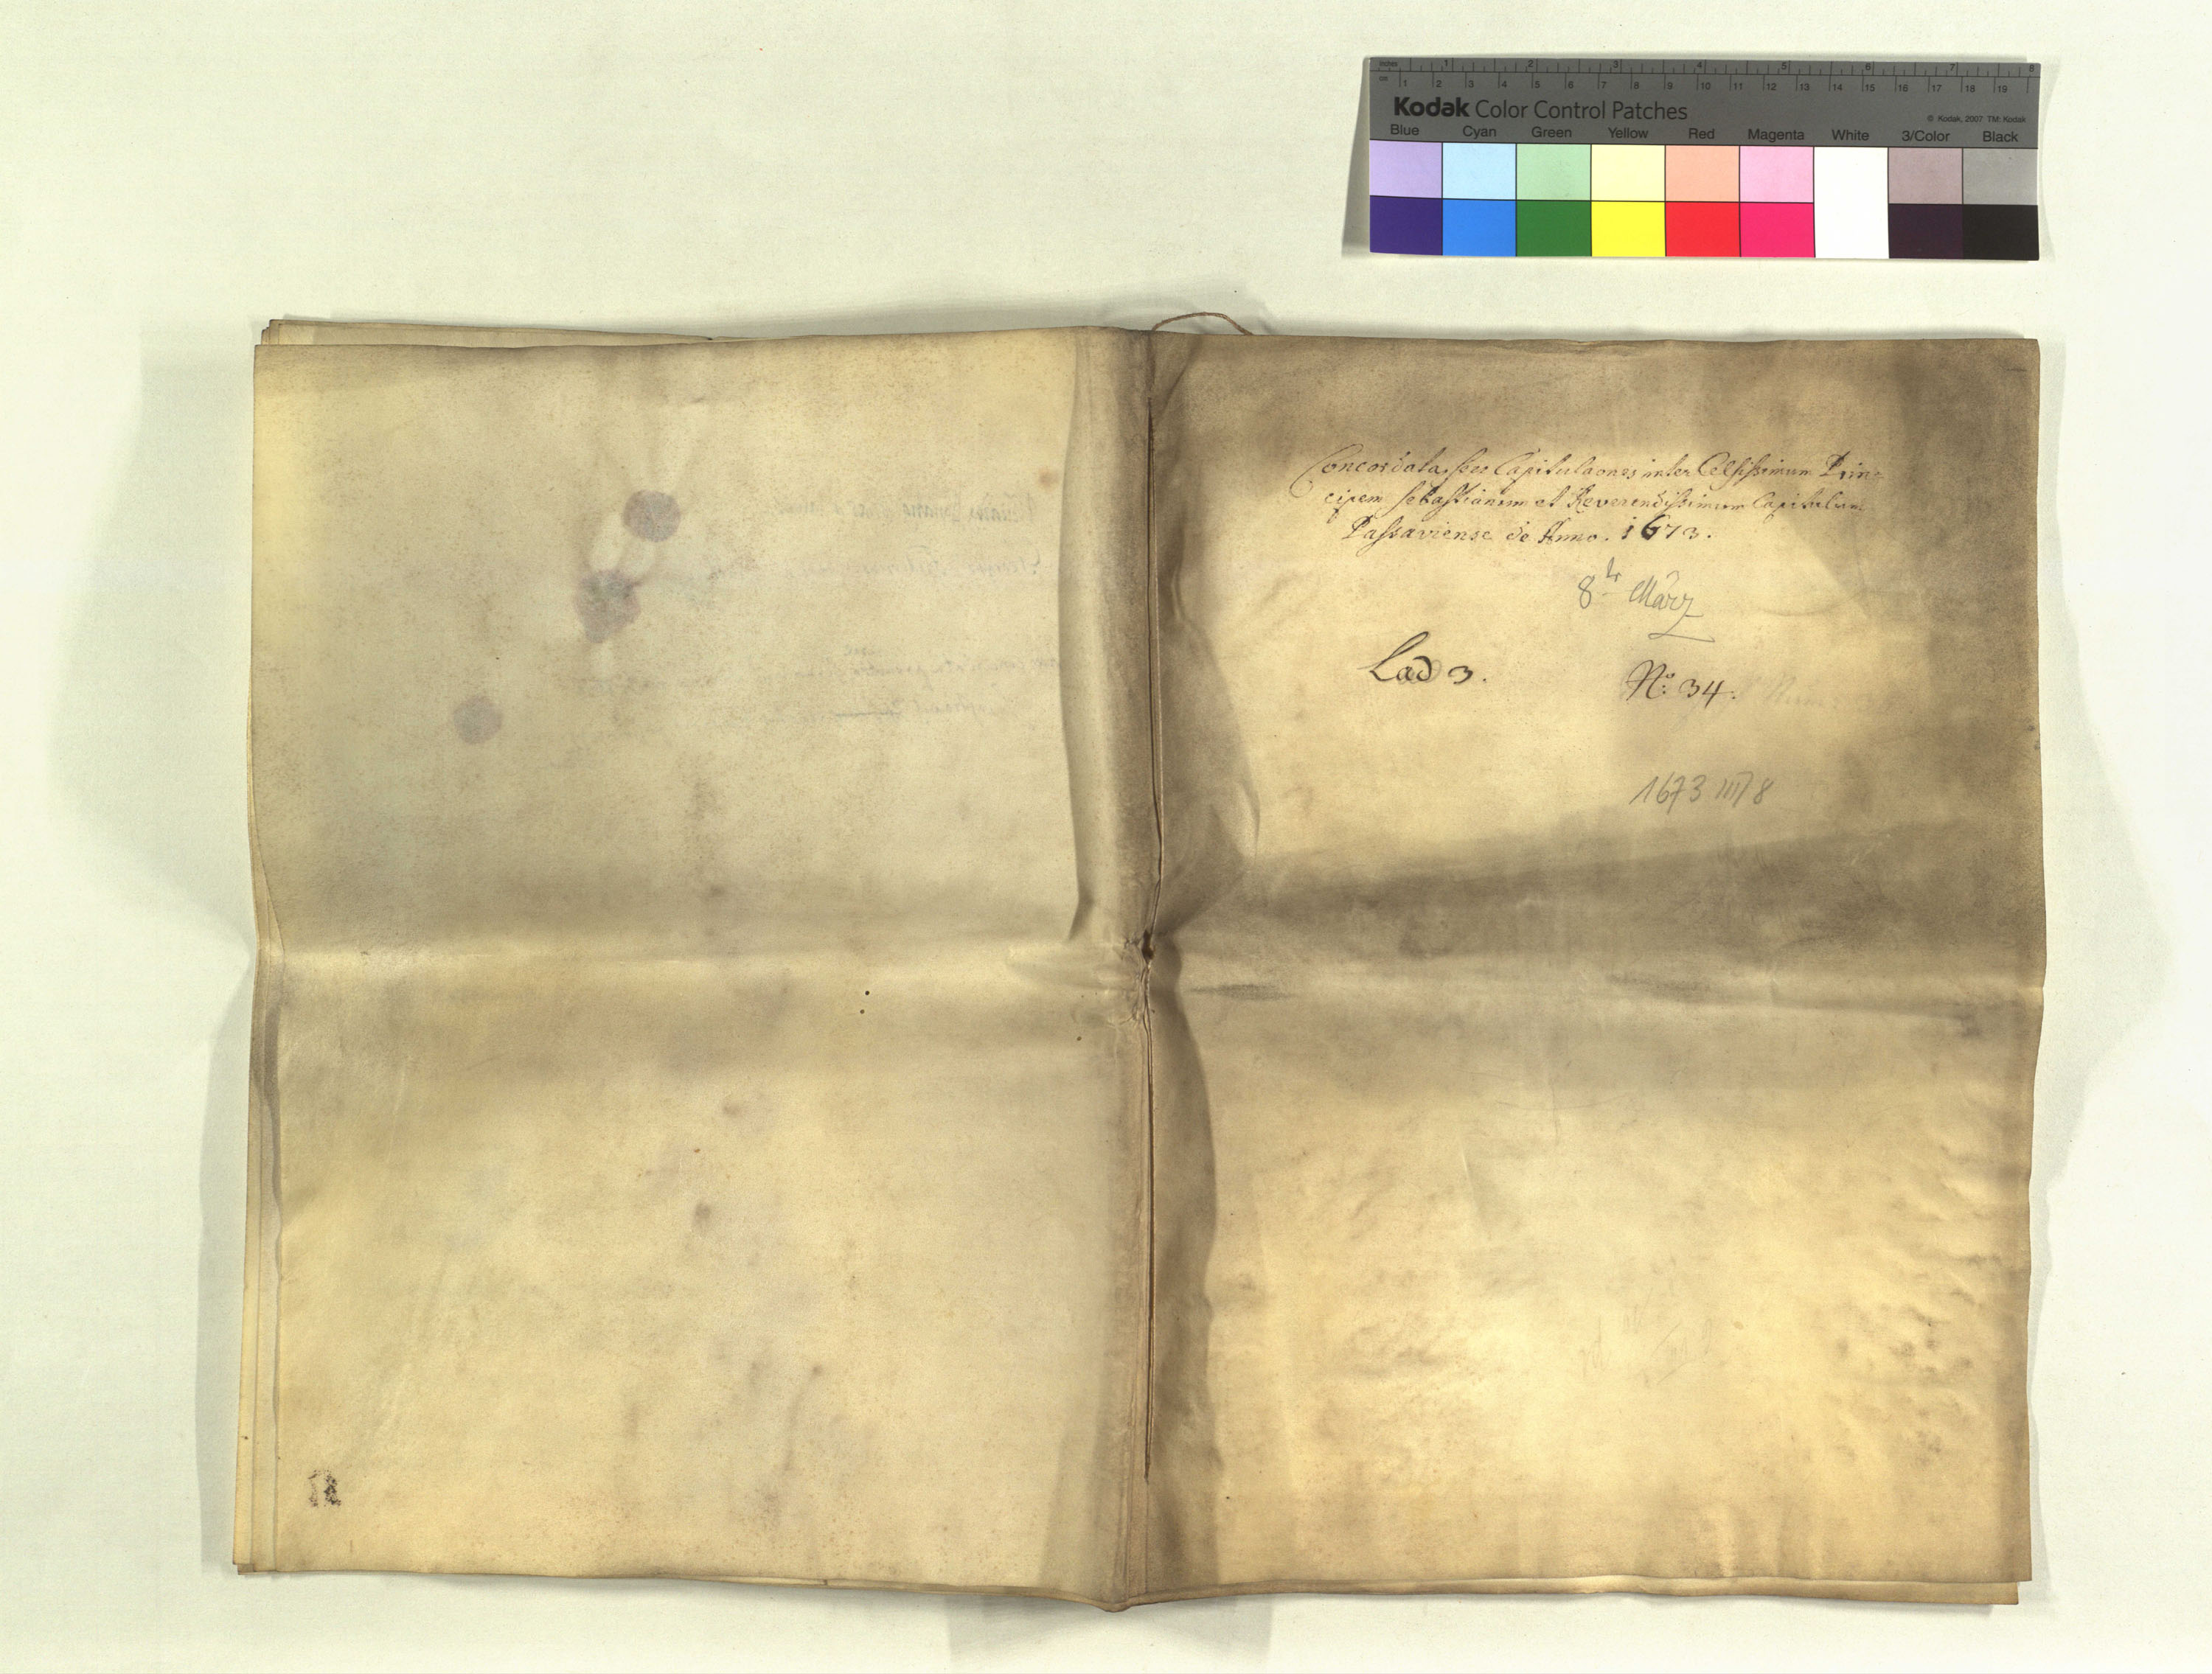 inches 1 2 3 4 5 6 7 8
cm 1 2 3 4 5 6 7 8 9 10 11 12 13 14 15 16 17 18 19
Kodak Color Control Patches
© Kodak, 2007 TM: Kodak
Blue Cyan Green Yellow Red Magenta White 3/Color Black
Concordata, seu Capitulaones inter Celsissimum Prin=
cipem Sebastianum et Reverendissimum Capitulum
Passaviense de Anno. 1673.
8tr März
Lad 3. No: 34.
1673 III/8